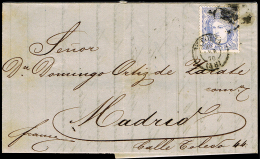 Señor
Dn. Domingo Ortiz de Zarate
Madrid
franco
Calle Toledo 44